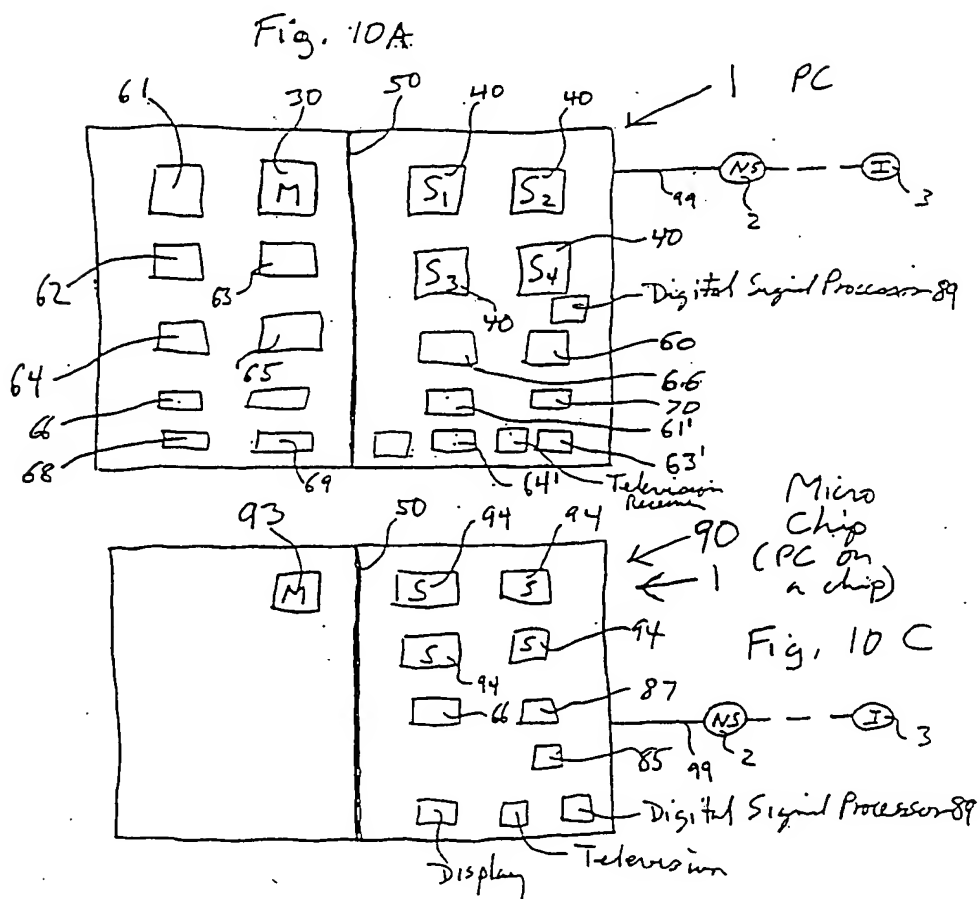 Fig. 10A
1 PC
61 30 50 40 40
M S1 S2
NS I
99 2 3
62 63 S3 S4 40
40
Digital Signal Processor 89
64 65 60
66
66 70
61'
68 69 64' 63'
Television
Receiver
93 50 94 94
90 Micro
Chip
(PC on
a chip)
1
M S S
S S 94
94
Fig. 10 C
66 87
NS I
85 99 2 3
Digital Signal Processor 89
Display Television